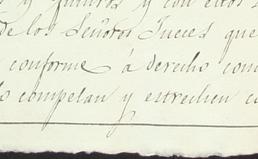 y y con estos
de los Señores Jueces que
conforme á derecho com
compelan y estrechen